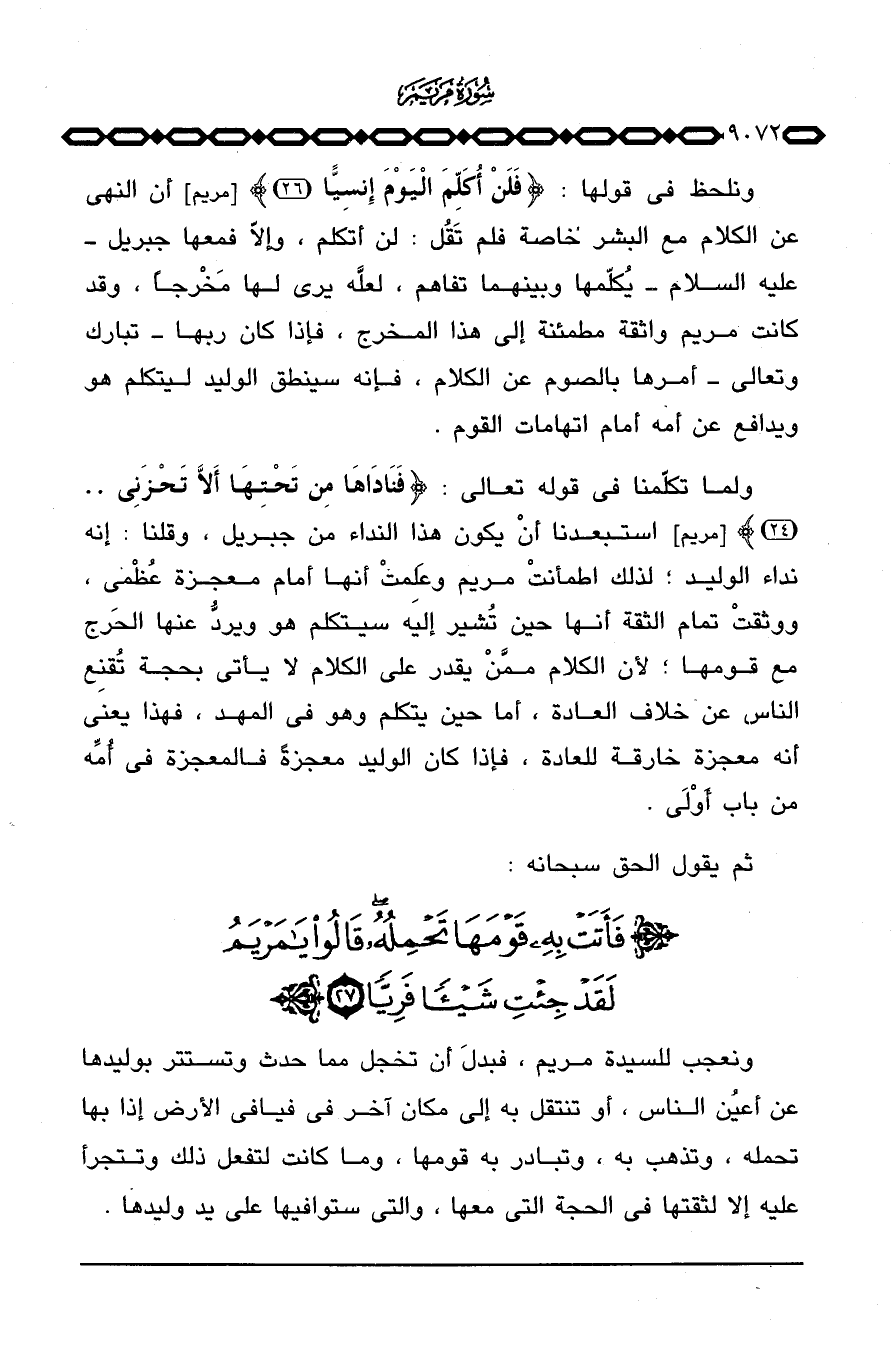 سُورَةُ مَرْيَمَ
٩٠٧٢
ونلحظ فى قولها : ﴿ فَلَنْ أُكَلِّمَ الْيَوْمَ إِنسِيًّا (٢٦) ﴾ [مريم] أن النهى
عن الكلام مع البشر خاصة فلم تَقُل : لن أتكلم ، وإلاَّ فمعها جبريل ـ
عليه السلام ـ يُكلِّمها وبينهما تفاهم ، لعلَّه يرى لها مَخْرجاً ، وقد
كانت مريم واثقة مطمئنة إلى هذا المخرج ، فإذا كان ربها ـ تبارك
وتعالى ـ أمرها بالصوم عن الكلام ، فإنه سينطق الوليد ليتكلم هو
ويدافع عن أمه أمام اتهامات القوم .
ولما تكلَّمنا فى قوله تعالى : ﴿ فَنَادَاهَا مِن تَحْتِهَا أَلاَّ تَحْزَنِى ..
(٢٤) ﴾ [مريم] استبعدنا أنْ يكون هذا النداء من جبريل ، وقلنا : إنه
نداء الوليد ؛ لذلك اطمأنتْ مريم وعلَمتْ أنها أمام معجزة عُظْمى ،
ووثقتْ تمام الثقة أنها حين تُشير إليه سيتكلم هو ويردُّ عنها الحَرج
مع قومها ؛ لأن الكلام ممَّنْ يقدر على الكلام لا يأتى بحجة تُقنع
الناس عن خلاف العادة ، أما حين يتكلم وهو فى المهد ، فهذا يعنى
أنه معجزة خارقة للعادة ، فإذا كان الوليد معجزةً فالمعجزة فى أُمِّه
من باب أَوْلَى .
ثم يقول الحق سبحانه :
﴿ فَأَتَتْ بِهِۦ قَوْمَهَا تَحْمِلُهُۥ ۖ قَالُوا۟ يَٰمَرْيَمُ
لَقَدْ جِئْتِ شَيْـًٔا فَرِيًّا ٢٧ ﴾
ونعجب للسيدة مريم ، فبدلَ أن تخجل مما حدث وتستتر بوليدها
عن أعيُن الناس ، أو تنتقل به إلى مكان آخر فى فيافى الأرض إذا بها
تحمله ، وتذهب به ، وتبادر به قومها ، وما كانت لتفعل ذلك وتتجرأ
عليه إلا لثقتها فى الحجة التى معها ، والتى ستوافيها على يد وليدها .